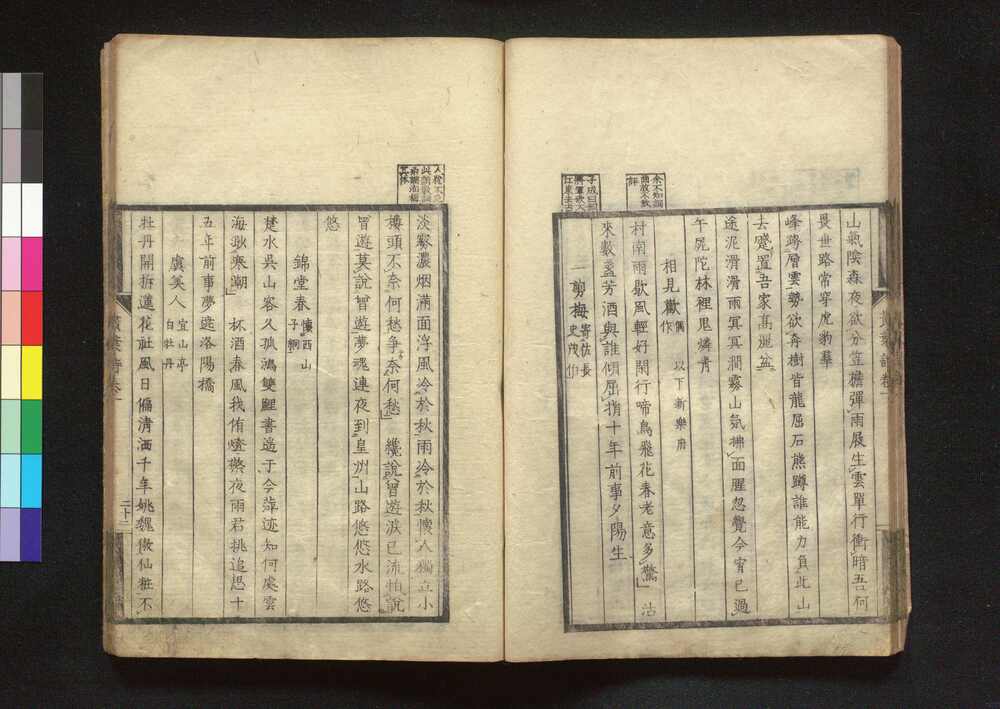 山氣陰森夜欲分笠檐彈雨屐生雲單行衝暗吾何
畏世路常穿虎豹羣
峰蹲層雲勢欲奔樹皆龍屈石熊蹲誰能力負此山
去蹙置吾家髙巡盆
途泥滑滑雨冥冥澗霧山氛拂面腥忽覺今宵已過
午尾陀林裡鬼燐青
相見歡 偶作 以下新樂府
村南雨歇風輕好閑行啼鳥飛花春老意多驚 沽
來數盞芳酒與誰傾屈指十年前事夕陽生
一剪梅 寄佐長史茂作
淡靄濃烟滿面浮風冷於秋雨冷於秋懷人獨立小
樓頭不奈何愁爭奈何愁 纔說曾遊淚已流怕說
曾遊莫說曾遊夢魂連夜到皇州山路悠悠水路悠
悠
錦堂春 懷西山子絅
楚水吳山客久孤鴻雙鯉書遙于今萍迹知何處雲
海渺寒潮 杯酒春風我侑燈檠夜雨君挑追思十
五年前事夢遶洛陽橋
虞美人 宜山亭白牡丹
牡丹開拆蓮花社風日偏清洒千年姚魏傲仙粧不
二十二